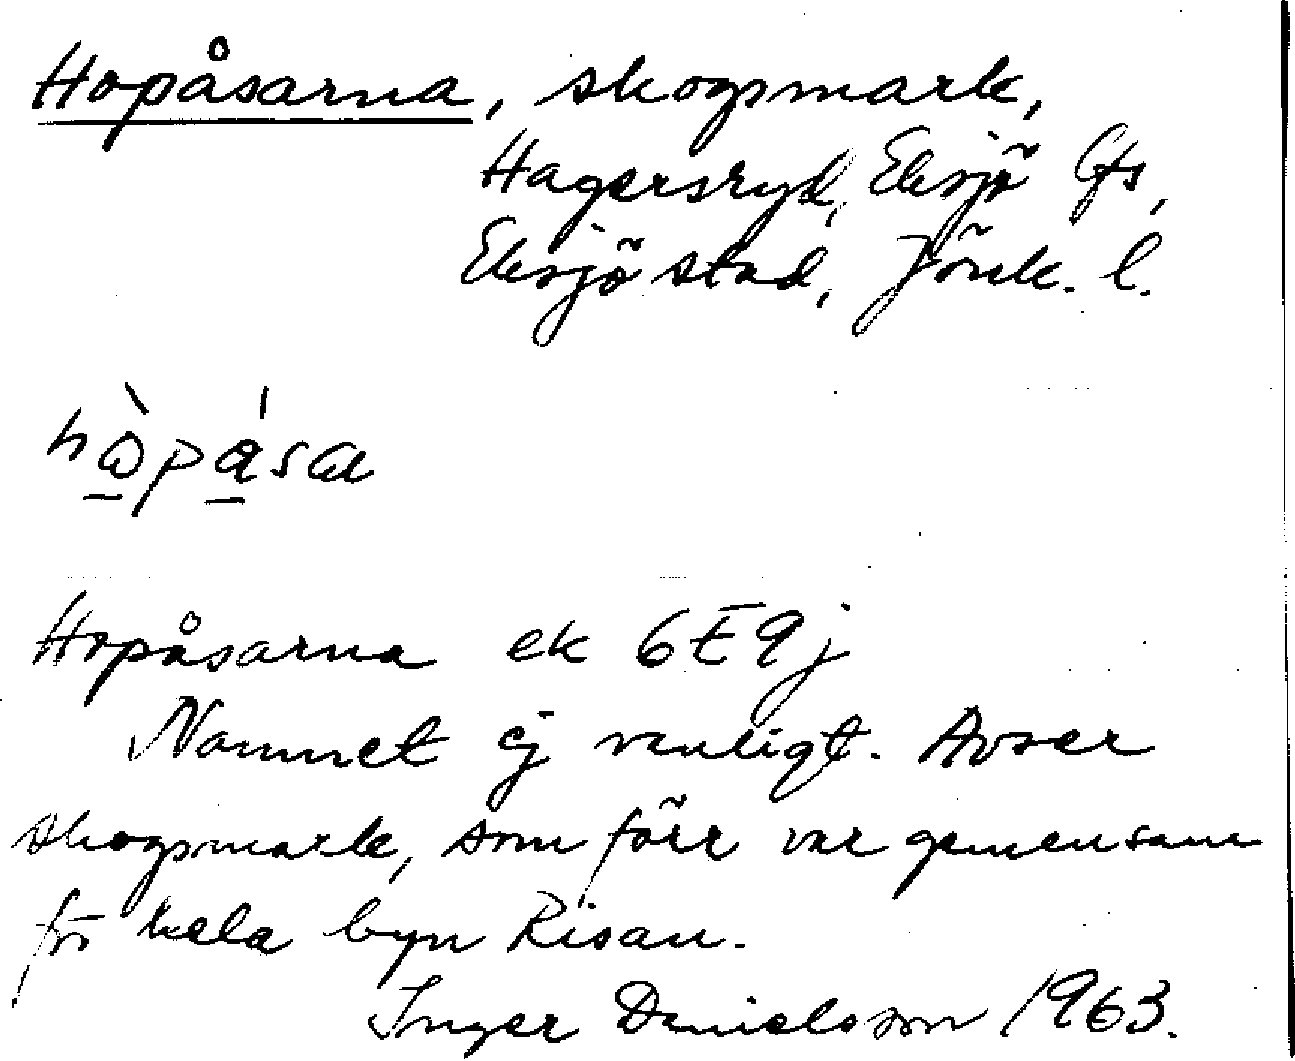 Hopåsarna, skogsmark,
Hagersryd, Eksjö lfs,
Eksjö stad, Jönk. l.
hò̱pá̱sa
Hopåsarna ek 6E9j
Namnet ej vanligt. Avser
skogsmark, som förr var gemensam
för hela byn Risan.
Inger Danielsson 1963.